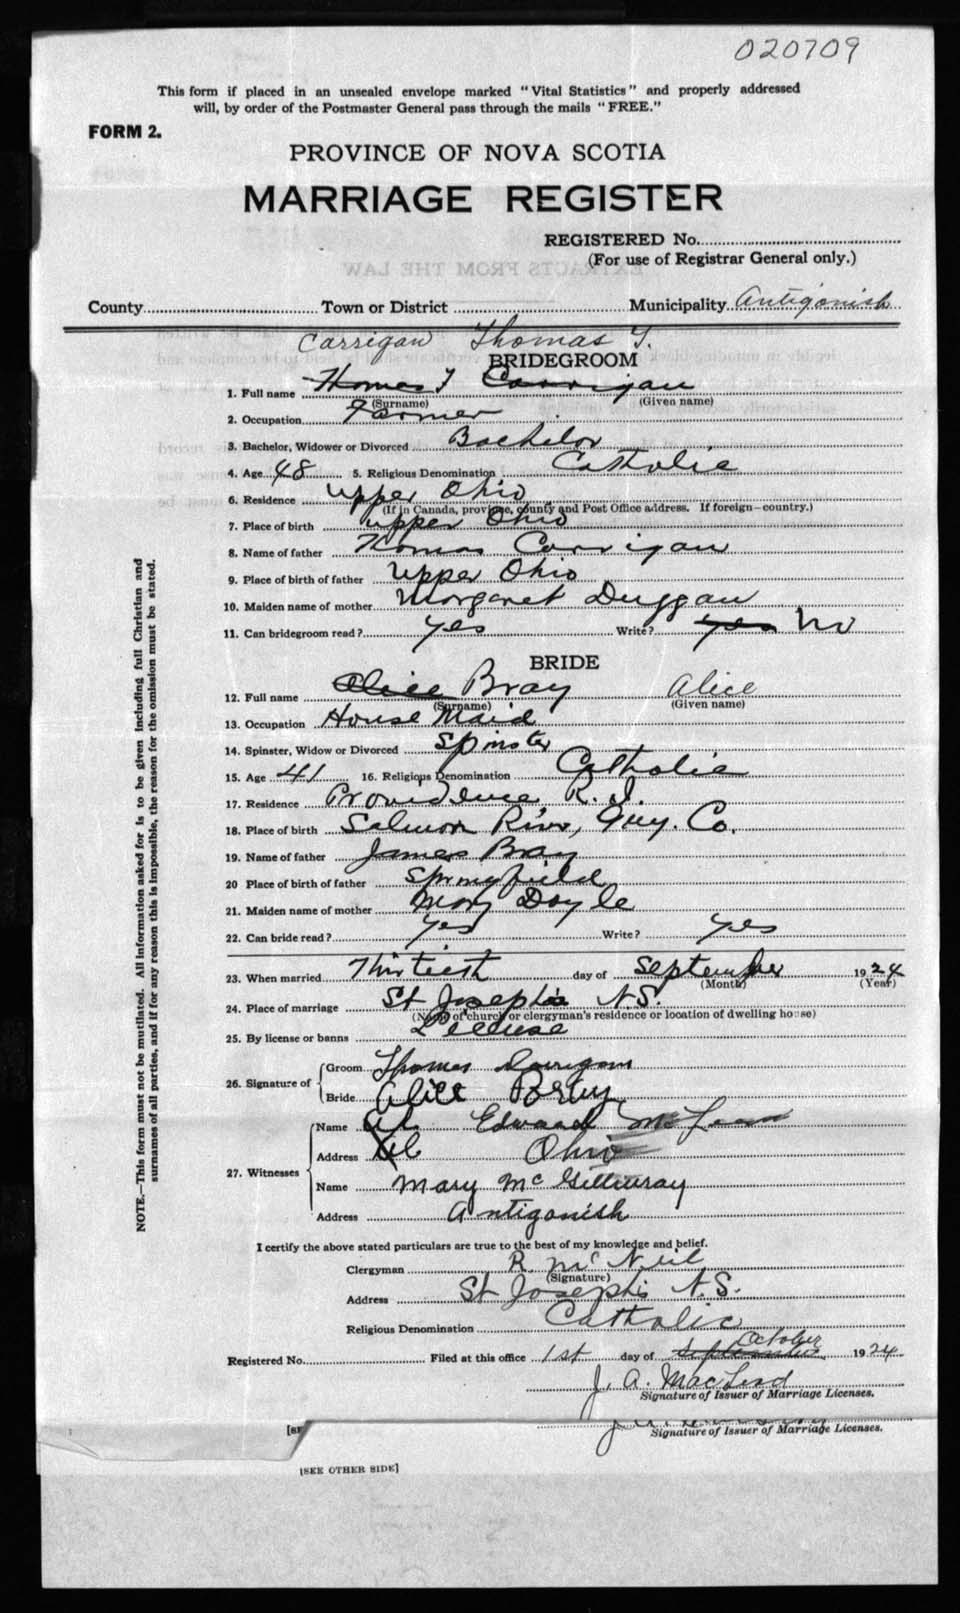 020709
This form if placed in an unsealed envelope marked "Vital Statistics" and properly addressed
will, by order of the Postmaster General pass through the mails "FREE."
FORM 2.
PROVINCE OF NOVA SCOTIA
MARRIAGE REGISTER
REGISTERED No.
(For use of Registrar General only.)
EXTRACTS FROM THE LAW
County Town or District Municipality Antigonish
Carrigan Thomas T.
BRIDEGROOM
1. Full name Thomas T Carrigan
(Surname) (Given name)
2. Occupation Farmer
3. Bachelor, Widower or Divorced Bachelor
4. Age 48 5. Religious Denomination Catholic
6. Residence Upper Ohio
(If in Canada, province, county and Post Office address. If foreign—country.)
7. Place of birth Upper Ohio
8. Name of father Thomas Carrigan
9. Place of birth of father Upper Ohio
10. Maiden name of mother Margaret Duggan
11. Can bridegroom read? Yes Write? yes No
BRIDE
12. Full name Alice Bray Alice
(Surname) (Given name)
13. Occupation House Maid
14. Spinster, Widow or Divorced Spinster
15. Age 41 16. Religious Denomination Catholic
17. Residence Providence, R. I.
18. Place of birth Salmon River, Guy. Co.
19. Name of father James Bray
20 Place of birth of father Springfield
21. Maiden name of mother Mary Doyle
22. Can bride read? Yes Write? Yes
23. When married Thirtieth day of September 1924
(Month) (Year)
24. Place of marriage St Joseph's N.S.
(Name of church or clergyman's residence or location of dwelling house)
25. By license or banns License
26. Signature of Groom Thomas Carrigan
Bride Alice Bray
27. Witnesses
Name Edward McLean
Address Ohio
Name Mary McGillivray
Address Antigonish
I certify the above stated particulars are true to the best of my knowledge and belief.
Clergyman R. McNeil
(Signature)
Address St Joseph's N.S.
Religious Denomination Catholic
Registered No. Filed at this office 1st day of September October 1924
J. A. MacLeod
Signature of Issuer of Marriage Licenses.
Signature of Issuer of Marriage Licenses.
[SEE OTHER SIDE]
NOTE.—This form must not be mutilated. All information asked for is to be given including full Christian and
surnames of all parties, and if for any reason this is impossible, the reason for the omission must be stated.